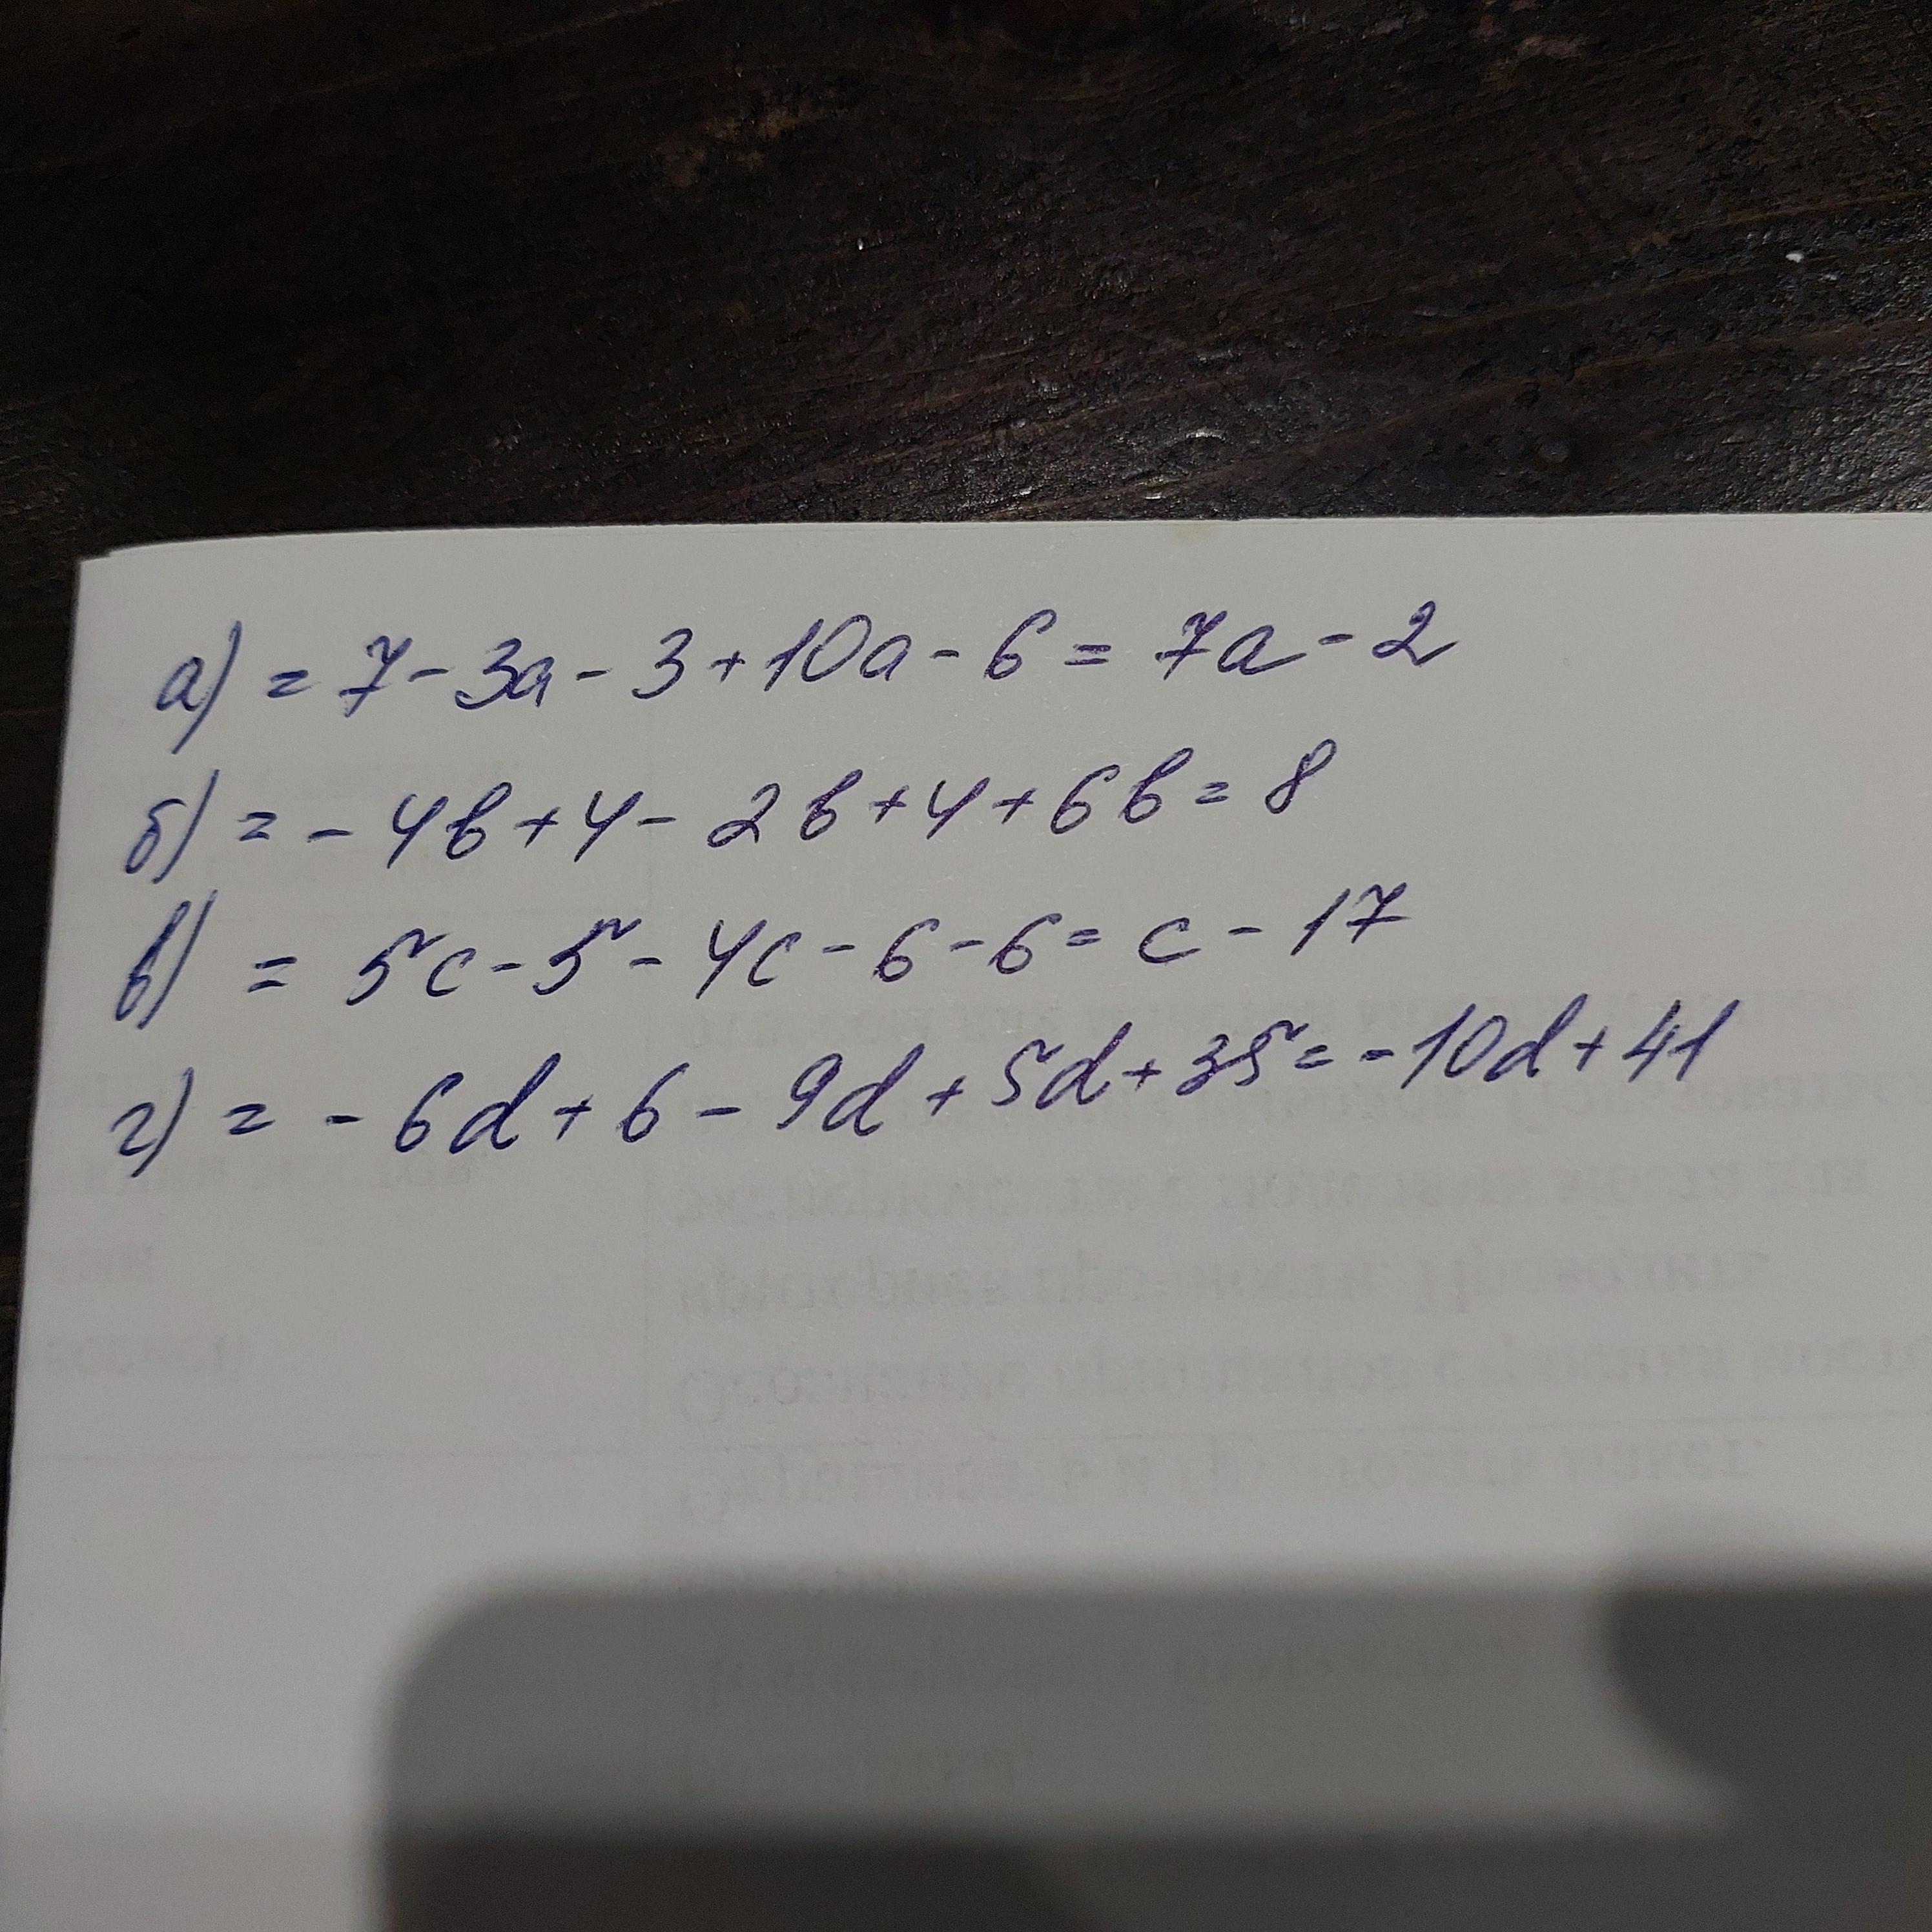 а) = 7 - 3a - 3 + 10a - 6 = 7a - 2
б) = - 4b + 4 - 2b + 4 + 6b = 8
в) = 5c - 5 - 4c - 6 - 6 = c - 17
г) = - 6d + 6 - 9d + 5d + 35 = - 10d + 41